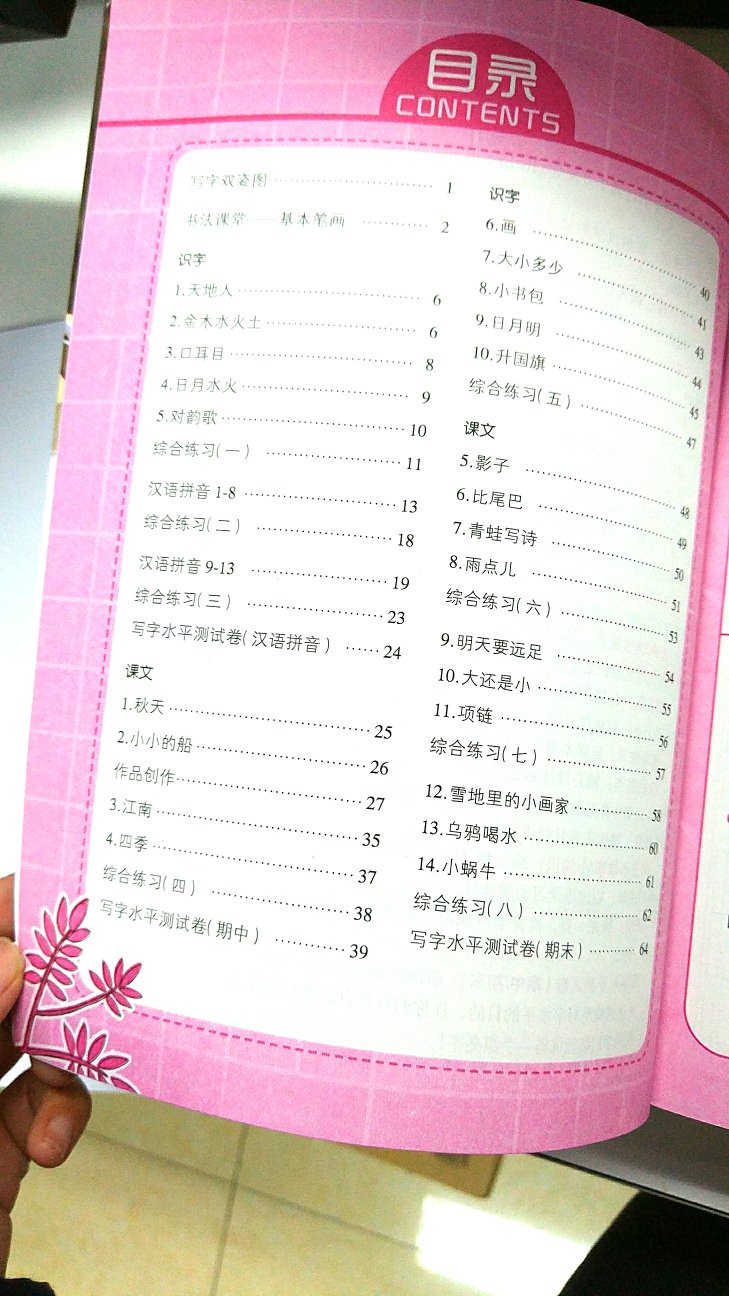 目录
CONTENTS
写字双姿图 ………………………… 1
书法课堂——基本笔画 ………… 2
识字
1.天地人 ………………………… 6
2.金木水火土 ………………………… 6
3.口耳目 ………………………… 8
4.日月水火 ………………………… 9
5.对韵歌 ………………………… 10
综合练习(一) ………………………… 11
汉语拼音 1-8 ………………………… 13
综合练习(二) ………………………… 18
汉语拼音 9-13 ………………………… 19
综合练习(三) ………………………… 23
写字水平测试卷(汉语拼音) …… 24
课文
1.秋天 ………………………… 25
2.小小的船 ………………………… 26
作品创作 ………………………… 27
3.江南 ………………………… 35
4.四季 ………………………… 37
综合练习(四) ………………………… 38
写字水平测试卷(期中) ………… 39
识字
6.画 ………………………… 40
7.大小多少 ………………………… 41
8.小书包 ………………………… 43
9.日月明 ………………………… 44
10.升国旗 ………………………… 45
综合练习(五) ………………………… 47
课文
5.影子 ………………………… 48
6.比尾巴 ………………………… 49
7.青蛙写诗 ………………………… 50
8.雨点儿 ………………………… 51
综合练习(六) ………………………… 53
9.明天要远足 ………………………… 54
10.大还是小 ………………………… 55
11.项链 ………………………… 56
综合练习(七) ………………………… 57
12.雪地里的小画家 ………………… 58
13.乌鸦喝水 ………………………… 60
14.小蜗牛 ………………………… 61
综合练习(八) ………………………… 62
写字水平测试卷(期末) ………… 64